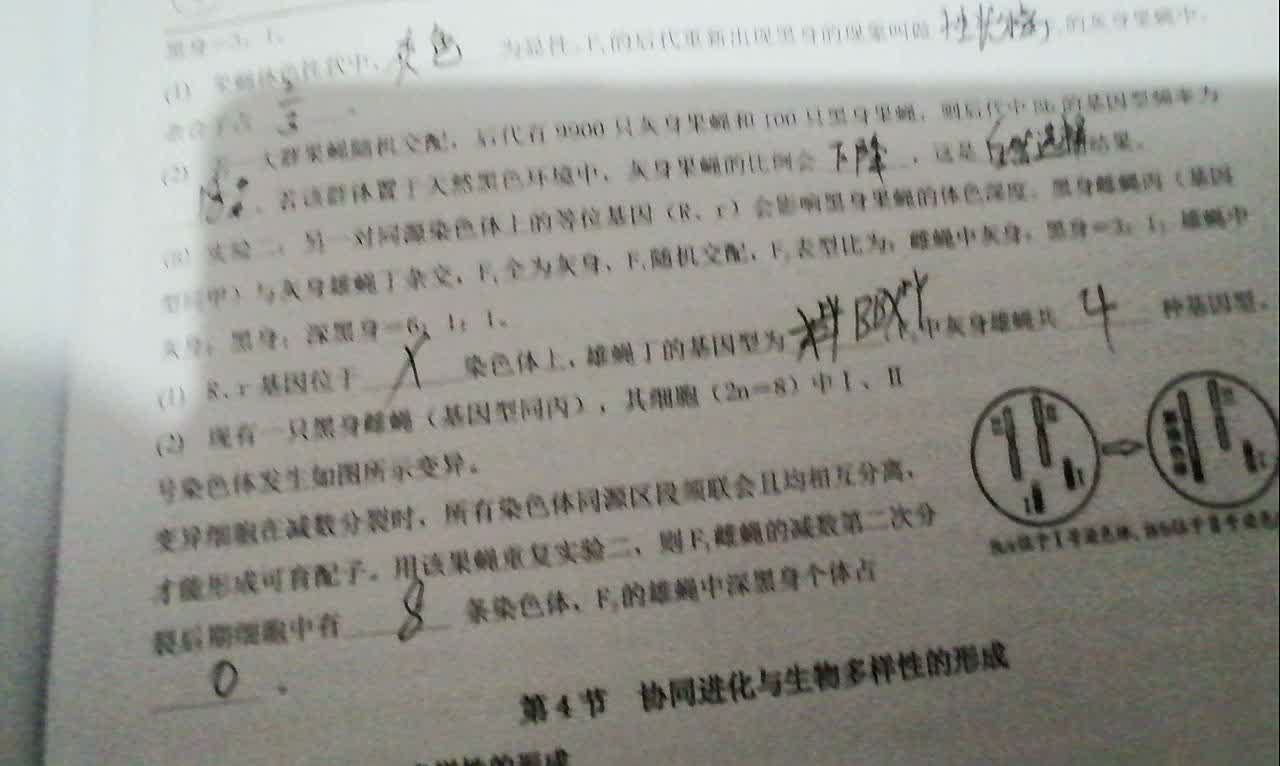 黑身=3：1。
(1) 果蝇体色性状中，灰色 为显性。F₁的后代重新出现黑身的现象叫做 性状分离；的灰身果蝇中，
杂合子占 2/3 。
(2) 若一大群果蝇随机交配，后代有9900只灰身果蝇和100只黑身果蝇，则后代中Bb的基因型频率为
。若该群体置于天然黑色环境中，灰身果蝇的比例会 下降 ，这是 自然选择 结果。
实验二：另一对同源染色体上的等位基因（R、r）会影响黑身果蝇的体色深度。黑身雌蝇丙（基因
型同甲）与灰身雄蝇丁杂交，F₁全为灰身，F₁随机交配，F₂表型比为：雌蝇中灰身：黑身=3：1；雄蝇中
灰身：黑身：深黑身=6：1：1。
(1) R、r基因位于 X 染色体上，雄蝇丁的基因型为 BBXʳY 中灰身雄蝇共 4 种基因型。
(2) 现有一只黑身雌蝇（基因型同丙），其细胞（2n=8）中Ⅰ、Ⅱ
号染色体发生如图所示变异。
变异细胞在减数分裂时，所有染色体同源区段须联会且均相互分离，
才能形成可育配子。用该果蝇重复实验二，则F₁雌蝇的减数第二次分
裂后期细胞中有 8 条染色体，F₂的雄蝇中深黑身个体占
0 。
第4节 协同进化与生物多样性的形成
样性的形成